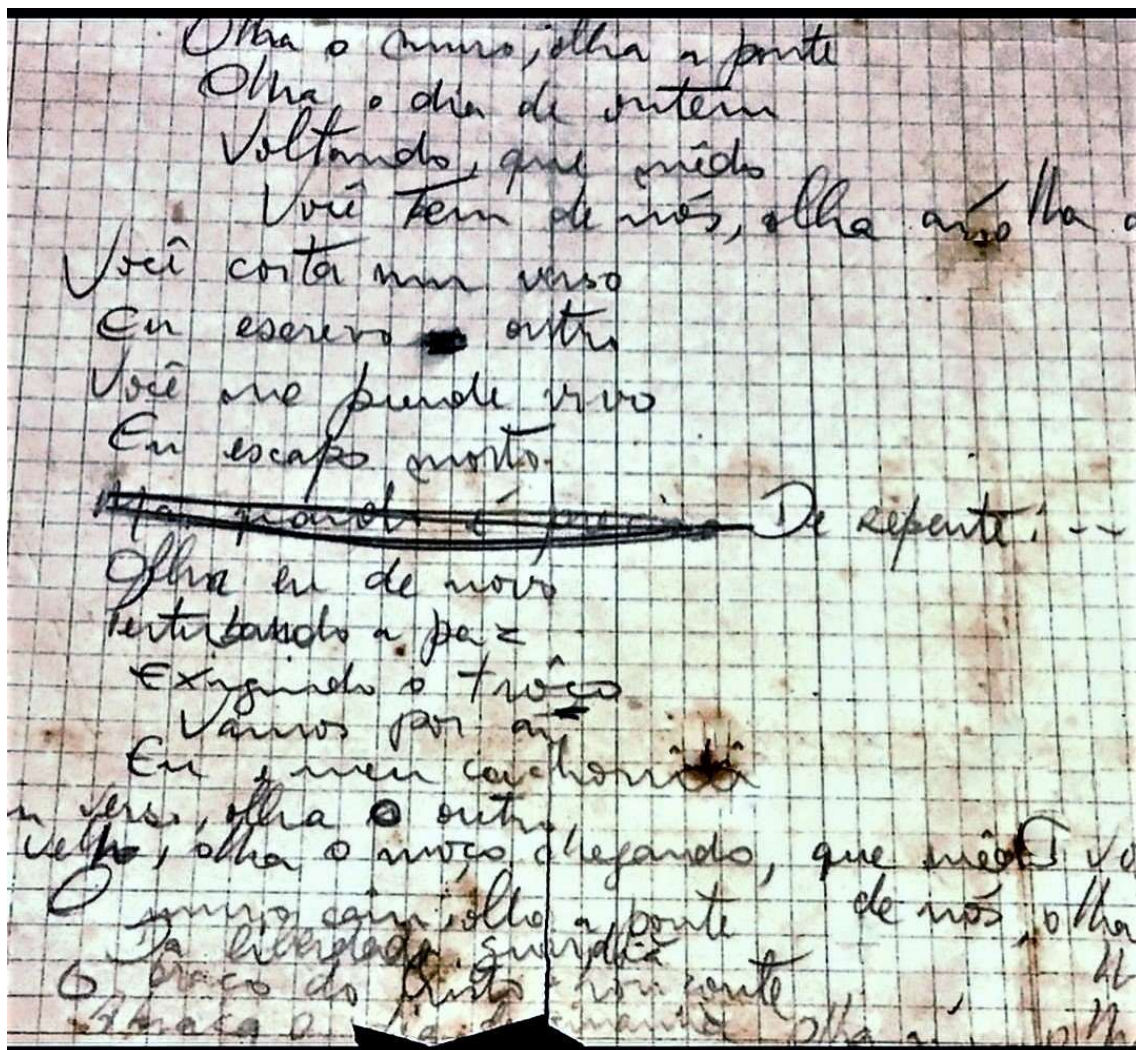 Olha o muro, olha a ponte
Olha o dia de ontem
Voltando, que mêdo
Você tem de nós, olha aí olha a
Você corta um verso
Eu escrevo outro
Você me prende vivo
Eu escapo morto.
Mas quando é preciso De repente...
Olha eu de novo
Perturbando a paz
Exigindo o trôco
Vamos por aí
Eu e meu cachorro
verso, olha o outro,
velho, olha o moço chegando, que mêdo vo
O muro caiu, olha a ponte de nós, olha
Da liberdade guardiã
O braço do Cristo horizonte
Abraça o dia de amanhã olha aí olha